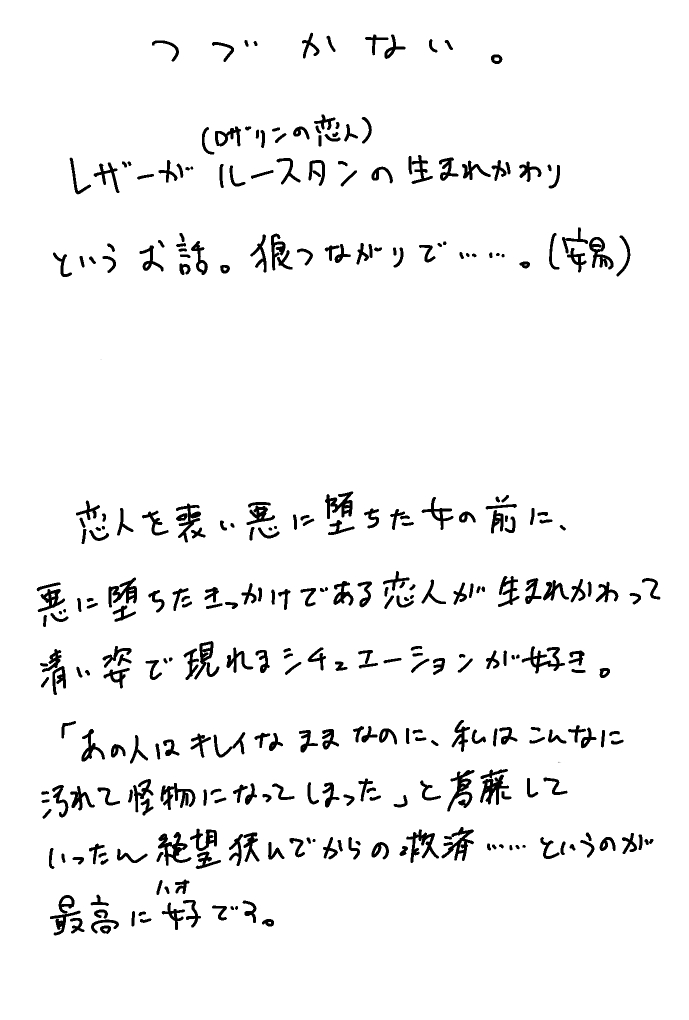 つづかない。
(ロザリンの恋人)
レザーがルースタンの生まれかわり
というお話。狼つながりで……。(安易)
恋人を喪い悪に堕ちた女の前に、
悪に堕ちたきっかけである恋人が生まれかわって
清い姿で現れるシチュエーションが好き。
「あの人はキレイなままなのに、私はこんなに
汚れて怪物になってしまった」と葛藤して
いったん絶望挟んでからの救済……というのが
ハオ
最高に好です。